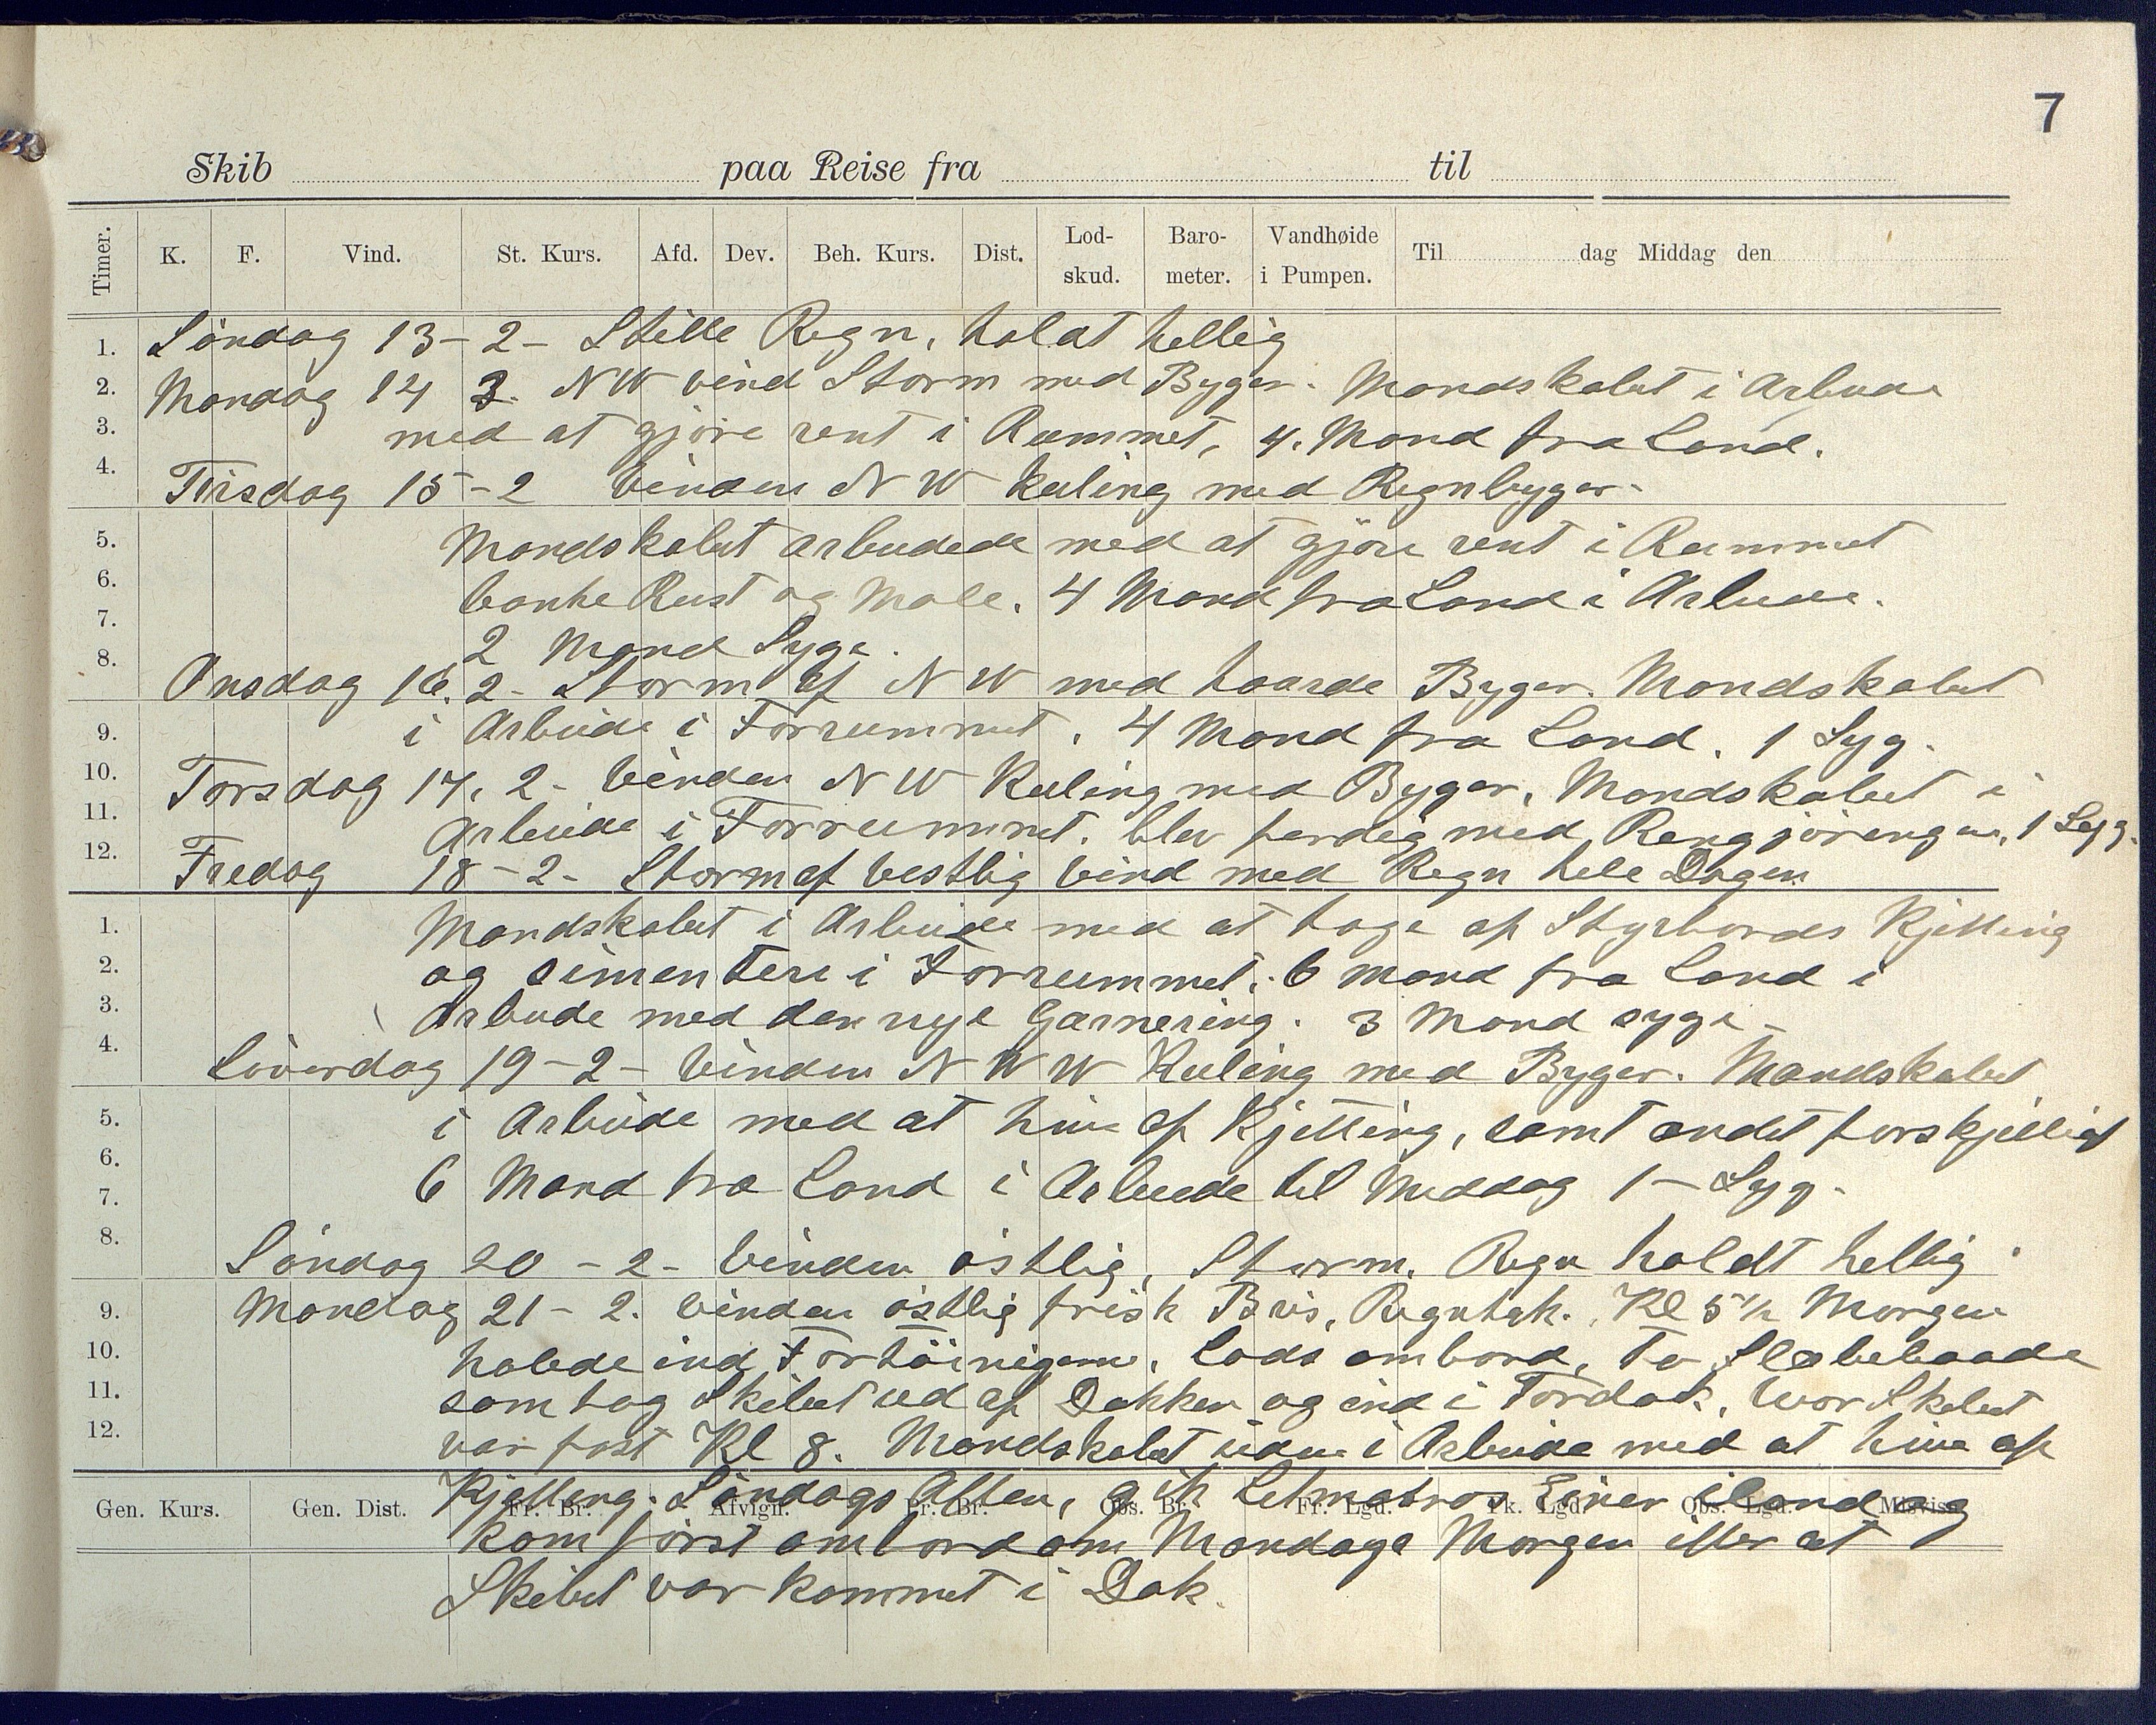 7
Skib paa Reise fra til
Timer. K. F. Vind. St. Kurs. Afd. Dev. Beh. Kurs. Dist. Lod-skud. Baro-meter. Vandhøide i Pumpen. Til dag Middag den
1. Söndag 13-2- Stille Regn, holdt hellig
2. Mandag 14 2. NW vind Storm med Byger. Mandskabet i Arbeide
3. med at gjöre rent i Rummet, 4. Mand fra Land.
4. Tirsdag 15-2 vinden NW Kuling med Regnbyger.
5. Mandskabet arbeidede med at gjöre rent i Rummet
6. banke Rust og Male. 4 Mand fra Land i Arbeide.
7. 2 Mand Syge.
8. Onsdag 16. 2- Storm af NW med haarde Byger. Mandskabet
9. i Arbeide i Forrummet. 4 Mand fra Land. 1 Syg.
10. Torsdag 17. 2- Vinden NW Kuling med Byger, Mandskabet i
11. Arbeide i Forrummet. blev ferdig med Rengjöringen, 1 Syg.
12. Fredag 18-2- Storm af vestlig vind med Regn hele Dagen
1. Mandskabet i Arbeide med at tage af Styrbords Kjetting
2. og simentere i Forrummet. 6 Mand fra Land i
3. Arbeide med den nye Garnering. 3 Mand syge-
4. Löverdag 19-2- Vinden NWW Kuling med Byger. Mandskabet
5. i Arbeide med at hive af Kjetting, samt andet forskjelligt
6. 6 Mand fra Land i Arbeide til Middag 1- Syg-
7.
8. Söndag 20-2- Vinden östlig, Storm. Regn holdt hellig.
9. Mandag 21-2. vinden östlig frisk Bris, Regntyk. Kl 5½ Morgen
10. halede ind Fortöiningerne. Lods ombord, To Slæbebaade
11. som tog Skibet ud af Dokken og ind i Tördok, hvor Skibet
12. var fast Kl 8. Mandskabet iden i Arbeide med at hive af
Kjetting. Söndags Aften, gik Letmatros Einer iland og
Gen. Kurs. Gen. Dist. Fr. Br. Afvign. Pr. Br. Obs. Br. Fr. Lgd. Pk. Lgd. Obs. Lgd. Misvisn.
kom först ombord om Mandags Morgen efter at
Skibet var kommet i Dok.